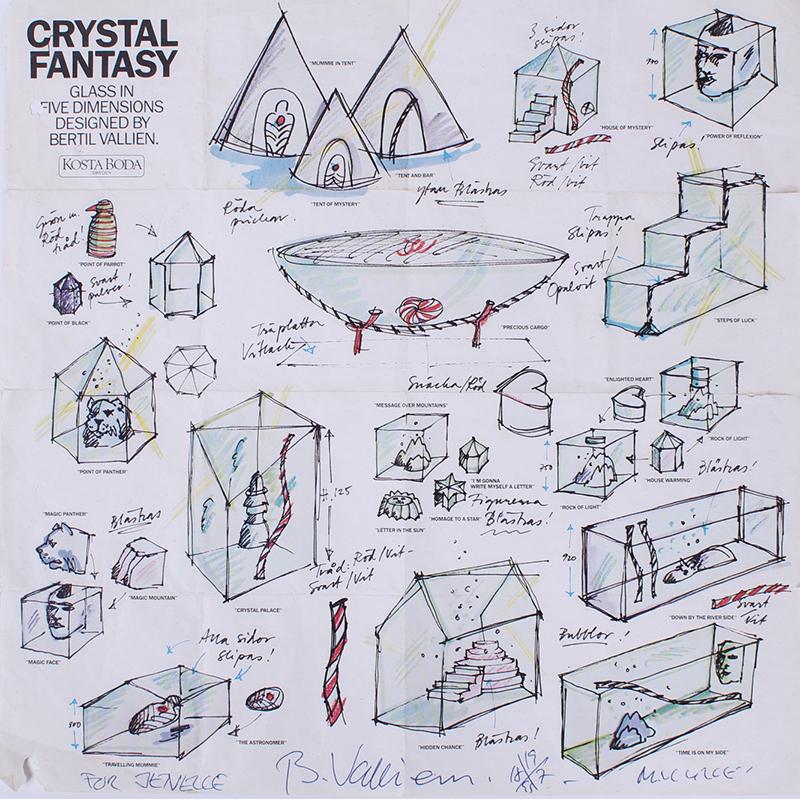 CRYSTAL
FANTASY
GLASS IN
FIVE DIMENSIONS
DESIGNED BY
BERTIL VALLIEN.
KOSTA BODA
SWEDEN
"MUMMIE IN TENT"
"TENT AND BAR"
"TENT OF MYSTERY"
ytan Blästras
3 sidor
slipas!
"HOUSE OF MYSTERY"
Svart/vit
Röd/vit
"POWER OF REFLEXION"
Slipas!
Röd
tråd!
"POINT OF PARROT"
Svart
pulver!
"POINT OF BLACK"
Röda
prickar.
"PRECIOUS CARGO"
Träplatta
Vitlack
Trappa
Slipas!
Svart/
Opalvit
"STEPS OF LUCK"
"POINT OF PANTHER"
H. 125
Tråd: Röd/Vit-
Svart/Vit
"CRYSTAL PALACE"
Snäcka/Röd
"MESSAGE OVER MOUNTAINS"
"I'M GONNA
WRITE MYSELF A LETTER"
"LETTER IN THE SUN"
"HOMAGE TO A STAR"
Figurerna
Blästras!
"ENLIGHTED HEART"
"ROCK OF LIGHT"
"HOUSE WARMING"
"ROCK OF LIGHT"
Blästras!
"MAGIC PANTHER"
Blästras
"MAGIC MOUNTAIN"
"MAGIC FACE"
"DOWN BY THE RIVER SIDE"
Svart
Vit
Alla sidor
slipas!
"THE ASTRONOMER"
"TRAVELLING MUMMIE"
"HIDDEN CHANCE"
Blästras!
Bubblor!
"TIME IS ON MY SIDE"
FOR JENELLE
B. Vallien.